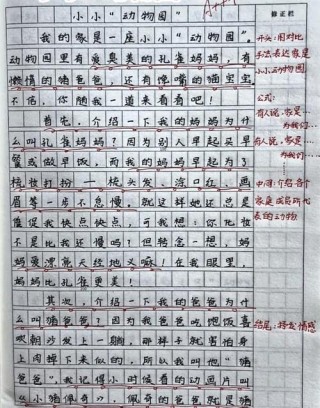 小小“动物园”
修正栏
A++
我的家是一座小小“动物园”。
动物园里有爱臭美的孔雀妈妈，有
懒惰的猪爸爸，还有馋嘴的猫宝宝
不信，你随我一道来看看吧！
首先，介绍一下我的妈妈为什
么叫孔雀妈妈？因为别人早起买早
餐或做早饭，而我的妈妈早起为了
梳妆打扮—梳头发、涂口红、画
眉等一步不怠慢，就这样她还总是
催促我快点快点，可我想：你化妆
不是比我还慢吗？但转念一想，妈
妈爱漂亮天经地义嘛！在我眼里，
妈妈比孔雀更美！
其次，介绍一下我的爸爸为什
么叫猪爸爸？因为我爸爸吃饱饭喜
欢朝沙发上一躺，那样子就害怕身
上肉掉下来似的，所以我叫他“猪
爸爸”，我记得小时候看的动画片叫
《小猪佩奇》，佩奇的爸爸就是猪
开头：用对比
手法表达家是
小小动物园
公式：
有人说，家是…
为我们…
有人说，家是…
为我们……
中间：介绍各个
家庭成员所代
表的动物
结尾：抒发情感